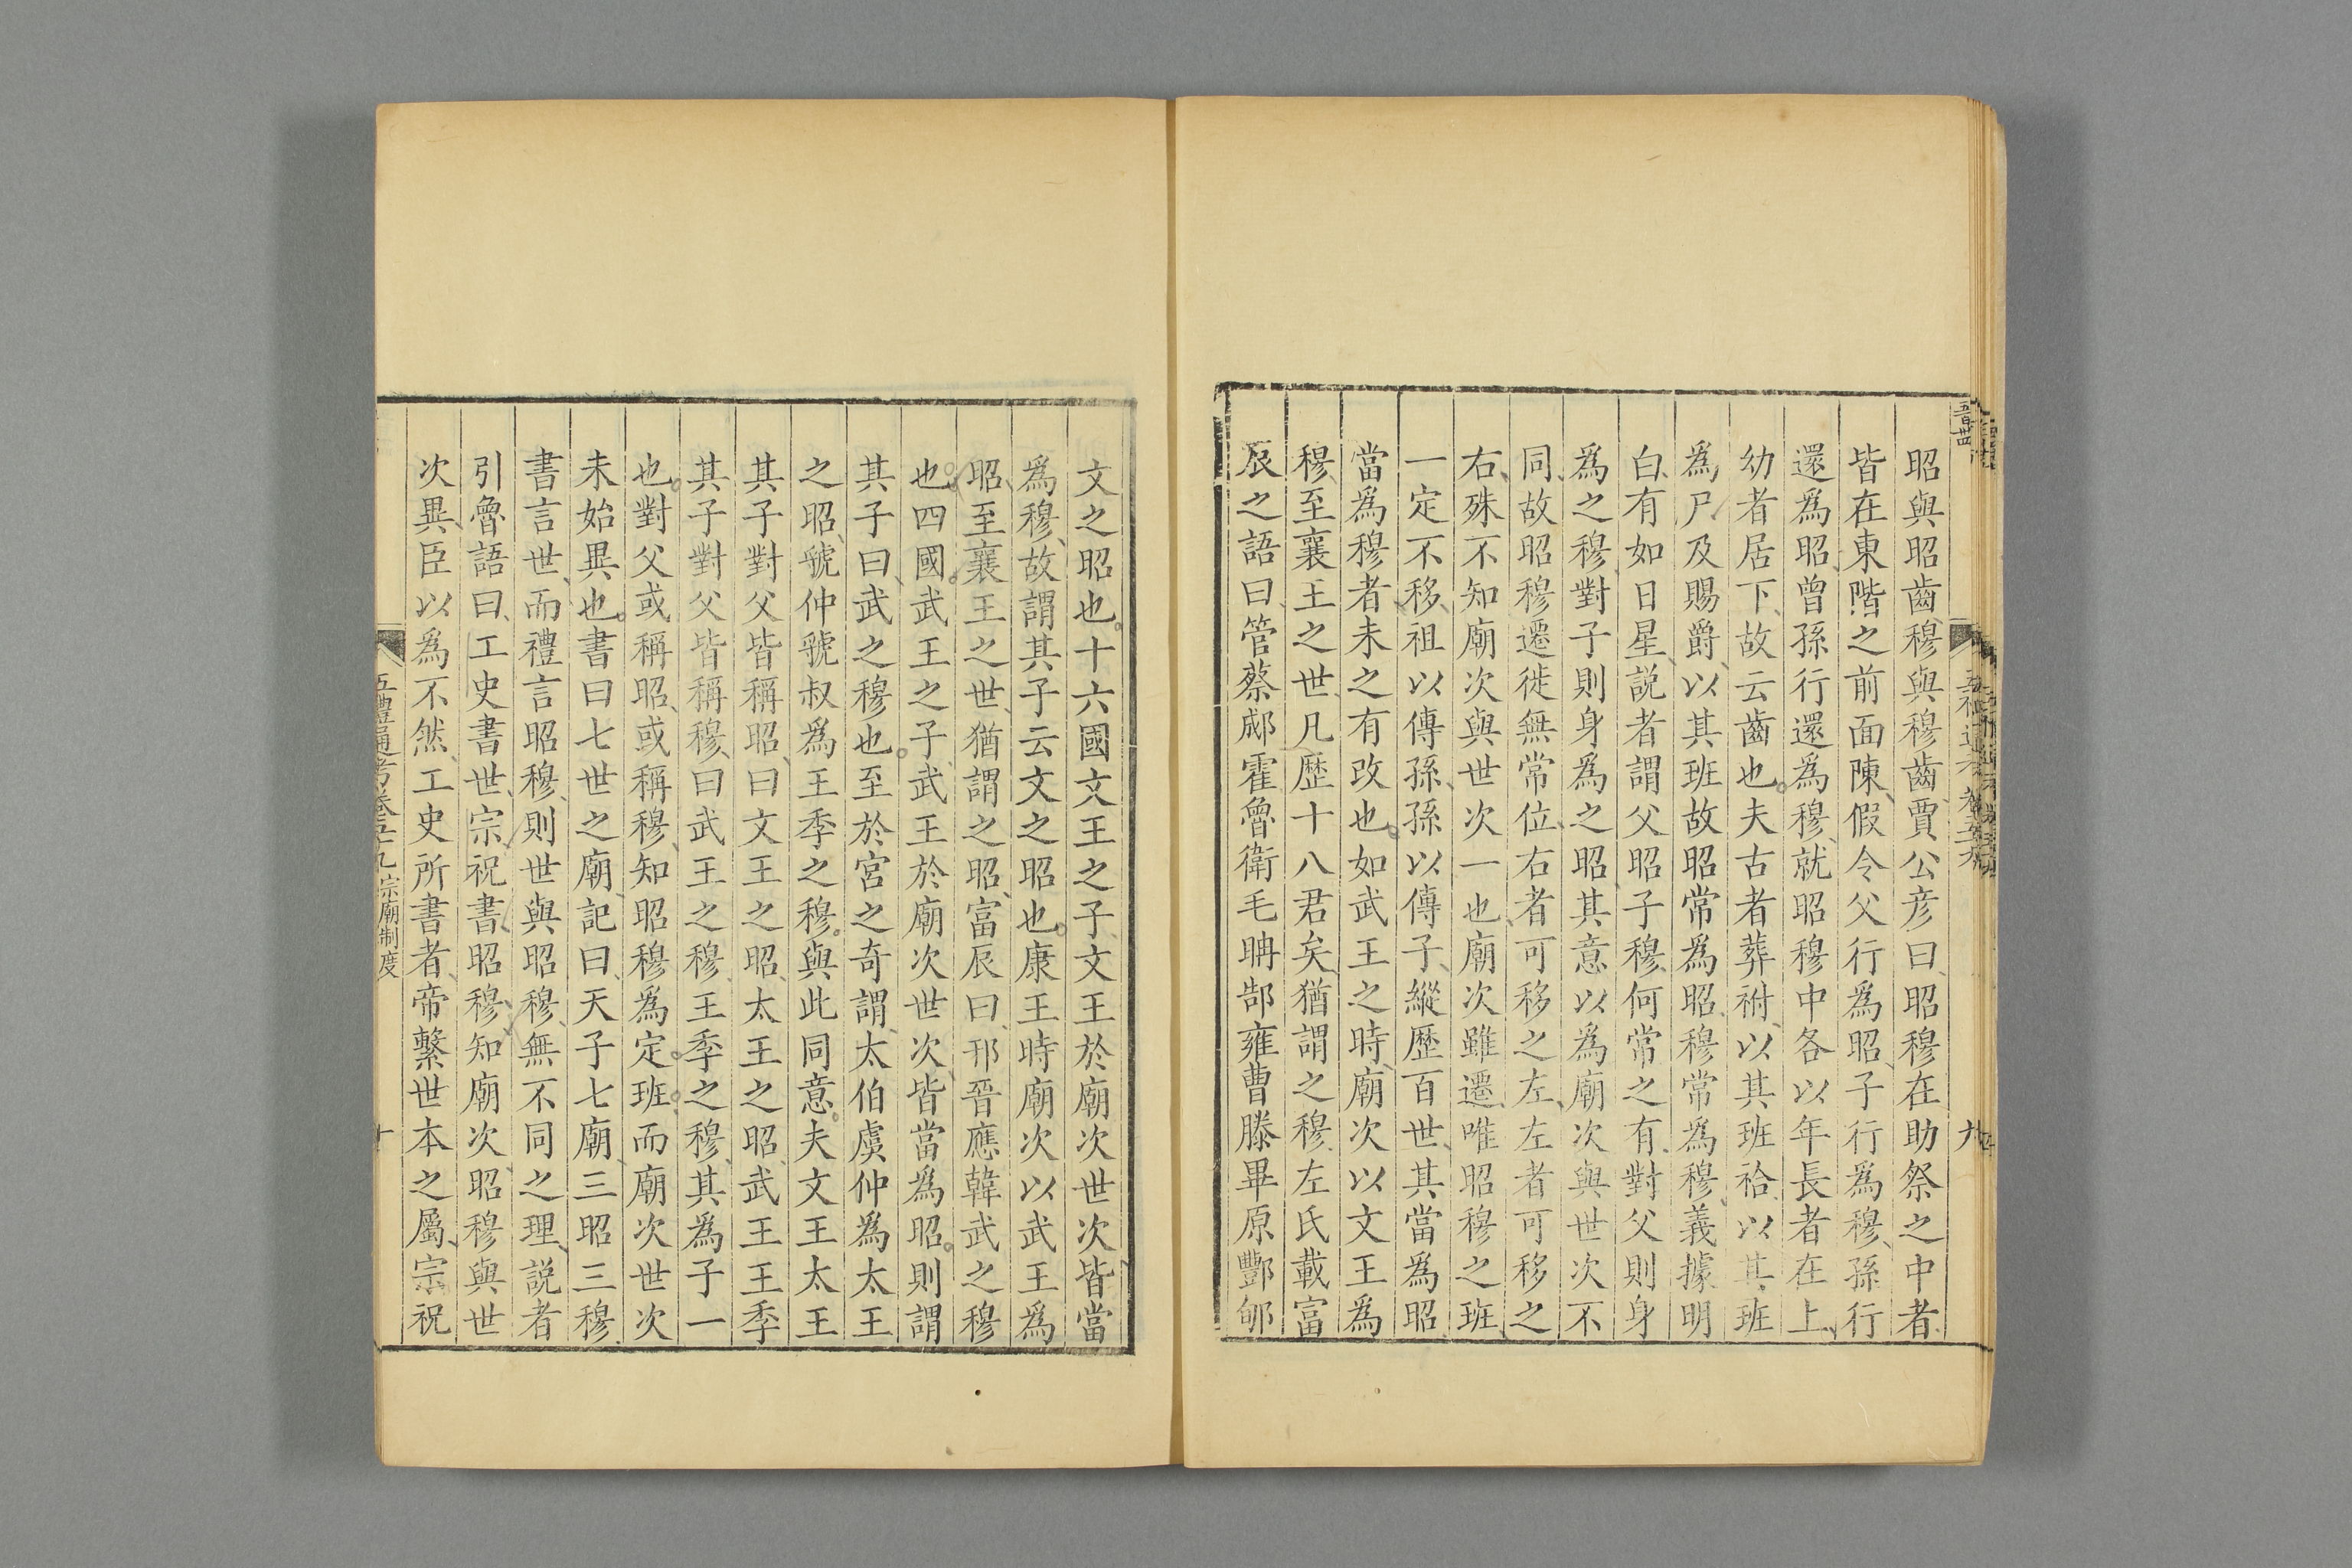 昭與昭齒穆與穆齒賈公彦曰昭穆在助祭之中者
皆在東階之前面陳假令父行爲昭子行爲穆孫行
還爲昭曾孫行還爲穆就昭穆中各以年長者在上
幼者居下故云齒也夫古者葬祔以其班祫以其班
爲尸及賜爵以其班故昭常爲昭穆常爲穆義據明
白有如日星説者謂父昭子穆何常之有對父則身
爲之穆對子則身爲之昭其意以爲廟次與世次不
同故昭穆遷徙無常位右者可移之左左者可移之
右殊不知廟次與世次一也廟次雖遷唯昭穆之班
一定不移祖以傳孫孫以傳子縱歷百世其當爲昭
當爲穆者未之有改也如武王之時廟次以文王爲
穆至襄王之世凡歷十八君矣猶謂之穆左氏載富
辰之語曰管蔡郕霍魯衛毛聃郜雍曹滕畢原酆郇
文之昭也十六國文王之子文王於廟次世次皆當
爲穆故謂其子云文之昭也康王時廟次以武王爲
昭至襄王之世猶謂之昭富辰曰邗晉應韓武之穆
也四國武王之子武王於廟次世次皆當爲昭則謂
其子曰武之穆也至於宮之奇謂太伯虞仲爲太王
之昭虢仲虢叔爲王季之穆與此同意夫文王太王
其子對父皆稱昭曰文王之昭太王之昭武王王季
其子對父皆稱穆曰武王之穆王季之穆其爲子一
也對父或稱昭或稱穆知昭穆爲定班而廟次世次
未始異也書曰七世之廟記曰天子七廟三昭三穆
書言世而禮言昭穆則世與昭穆無不同之理説者
引魯語曰工史書世宗祝書昭穆知廟次昭穆與世
次異臣以爲不然工史所書者帝繫世本之屬宗祝
五禮通考卷五十九宗廟制度
十